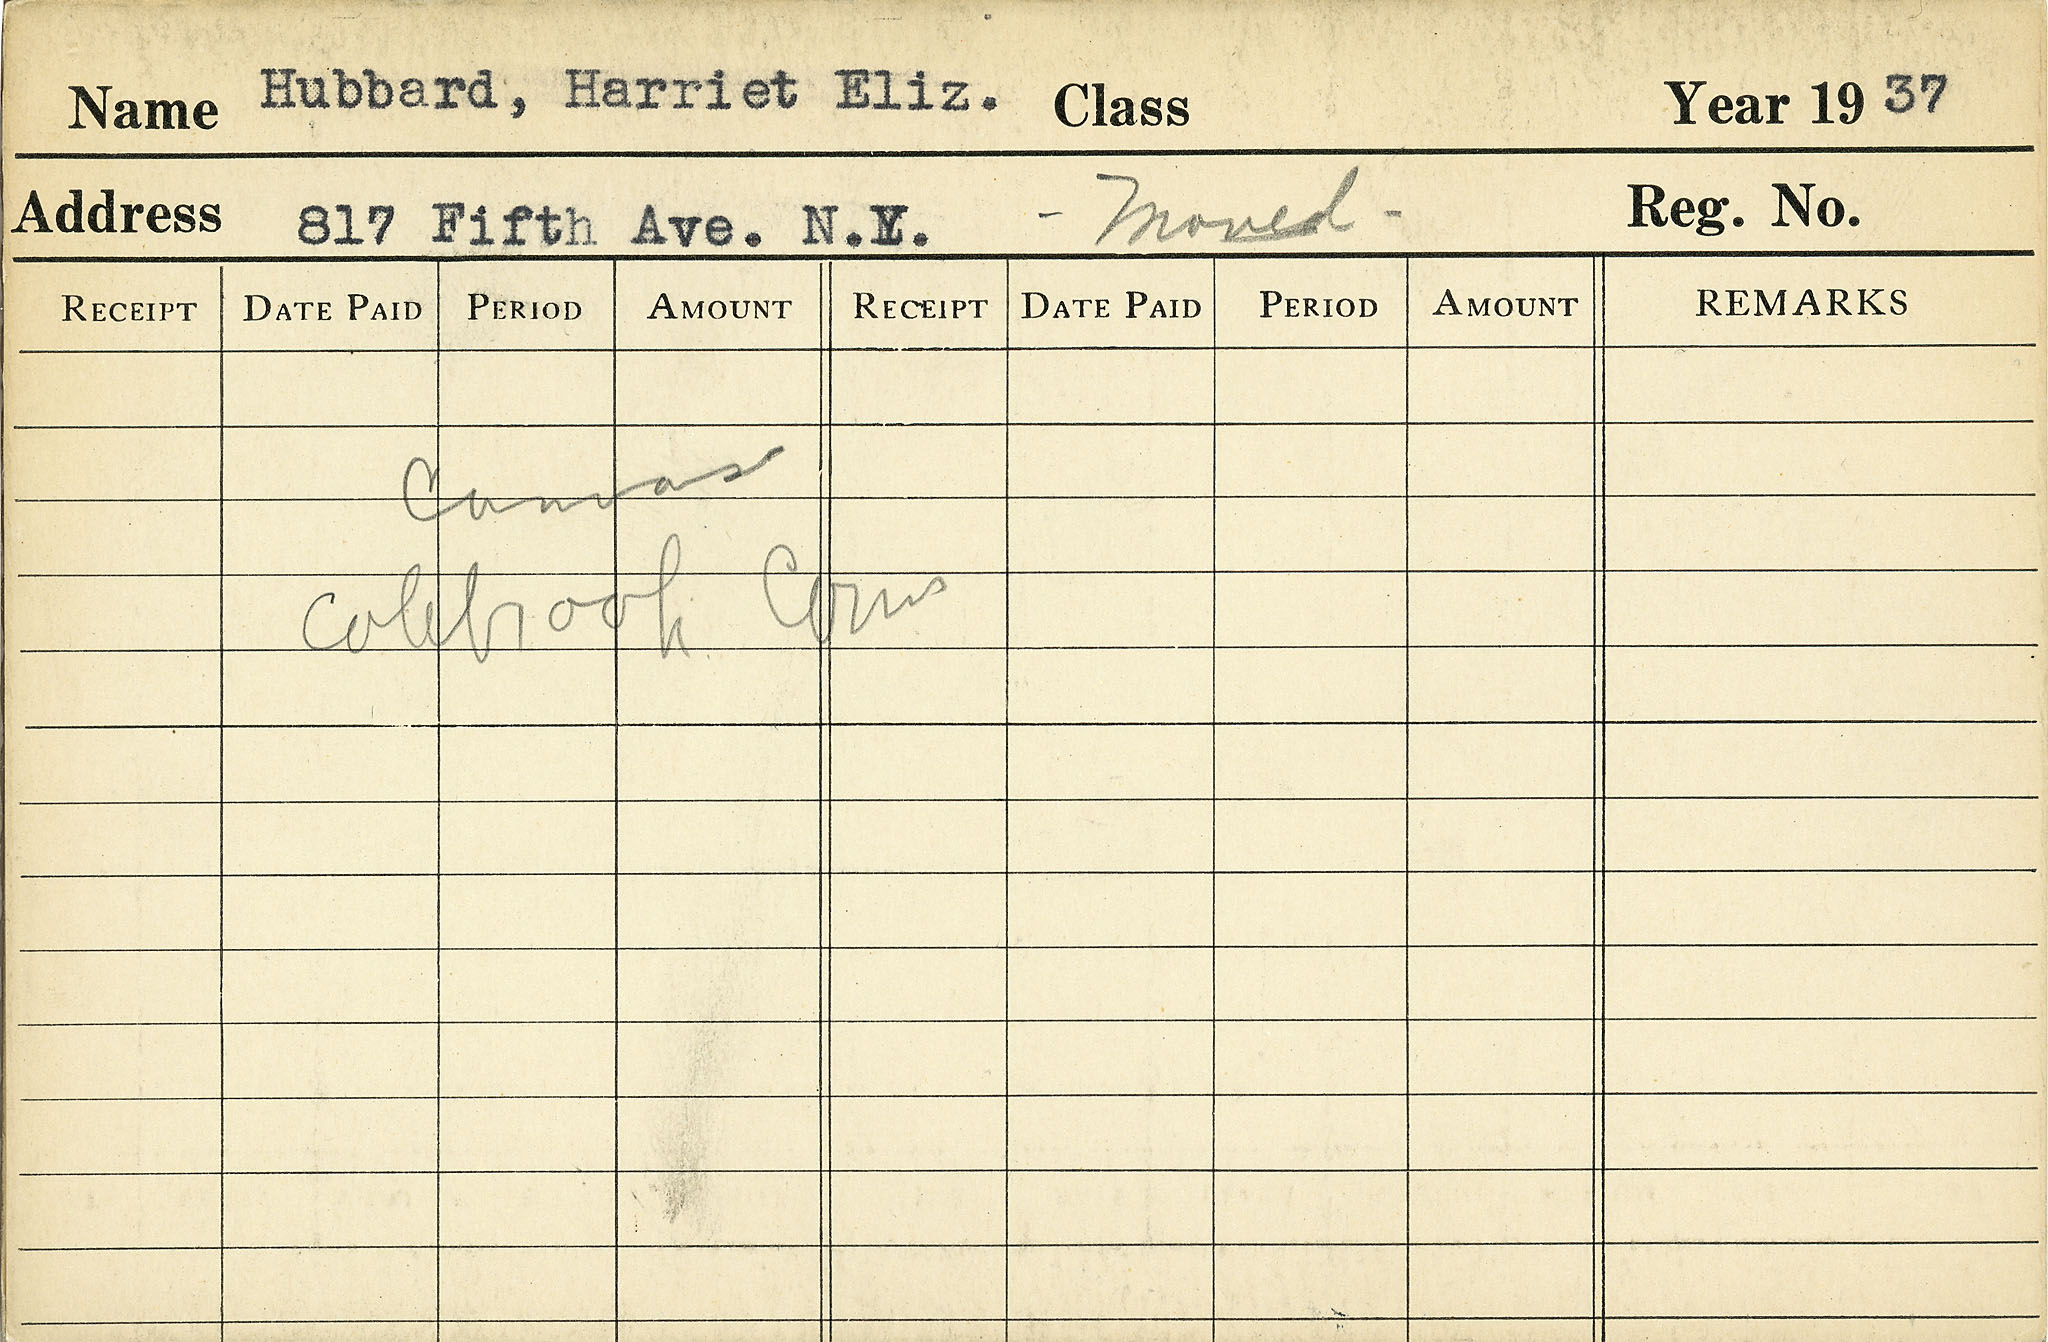 Name Hubbard, Harriet Eliz. Class Year 19 37
Address 817 Fifth Ave. N.Y. - Moved - Reg. No.
RECEIPT DATE PAID PERIOD AMOUNT RECEIPT DATE PAID PERIOD AMOUNT REMARKS
Canvas
Colebrook Conn